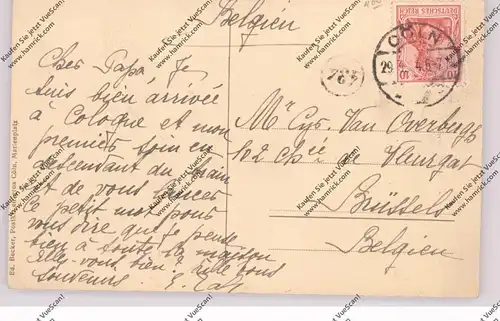 Belgien
Cher Papa, Je
suis bien arrivée
à Cologne et mon
premier soin en
descendant du train
est de vous lancer
ce petit mot pour
vous dire que je pense
bien à toute la maison
vous bien à tous
souvenirs.
Mr Cys. Van Overbergh
102 chée de Vleurgat
Brüssels
Belgien
DEUTSCHES REICH
10 10
CÖLN
29
76
Ed. Becker, Cöln, Neumarktplatz
Kaufen Sie jetzt VueScan!
www.hamrick.com